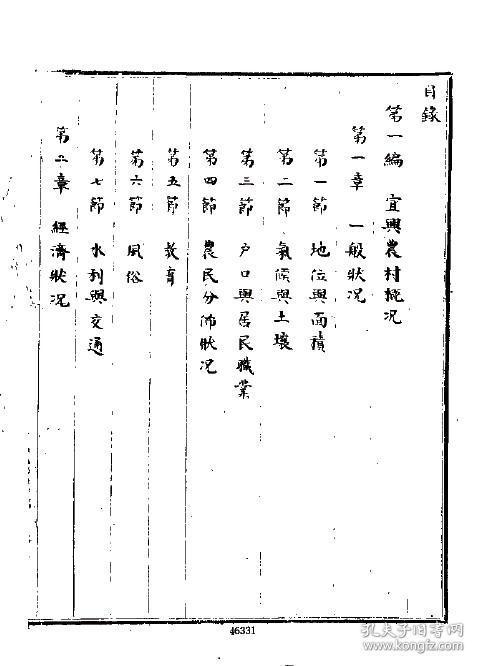 目錄
第一編 宜興農村概況
第一章 一般狀況
第一節 地位與面積
第二節 氣候與土壤
第三節 户口與居民職業
第四節 農民分佈狀況
第五節 教育
第六節 風俗
第七節 水利與交通
第二章 經濟狀況
46331
孔夫子旧书网
www.kongfz.com